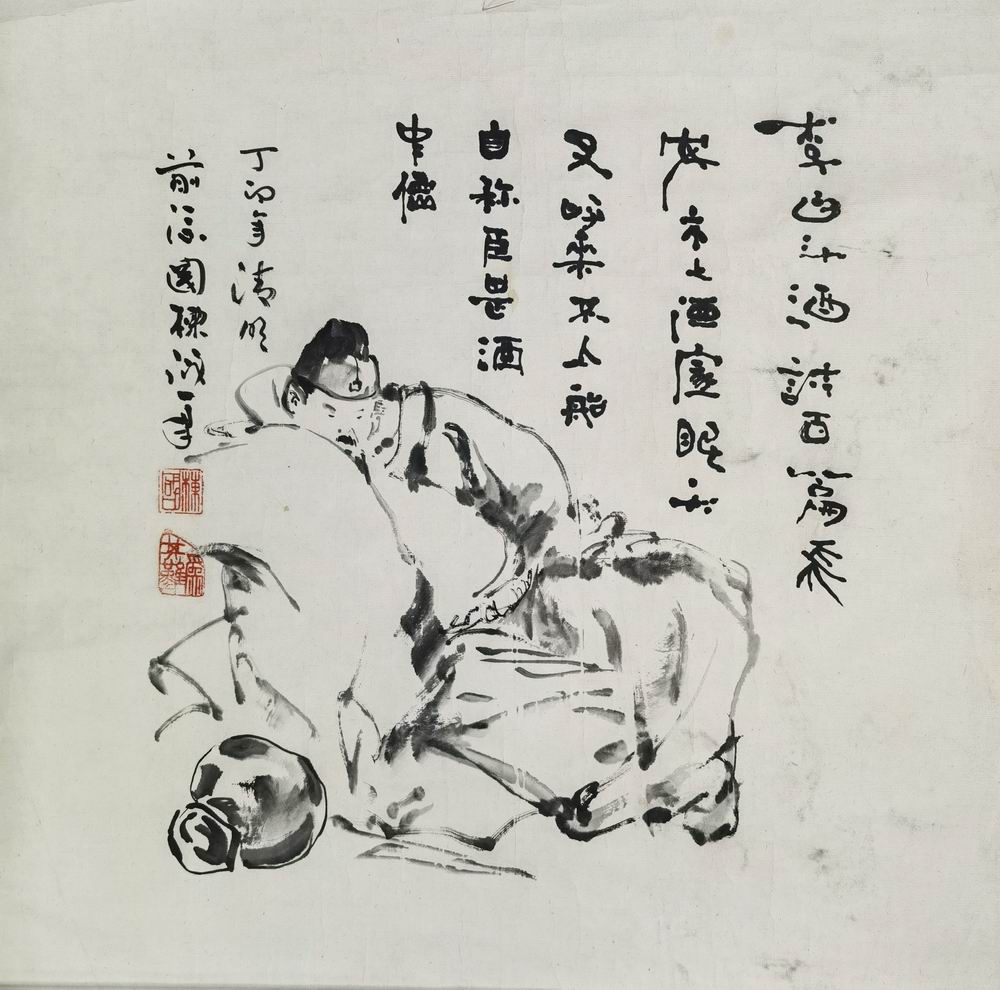 李白斗酒詩百篇長
安市上酒家眠天
子呼來不上船
自称臣是酒
中僊
丁卯年清明
前國棟